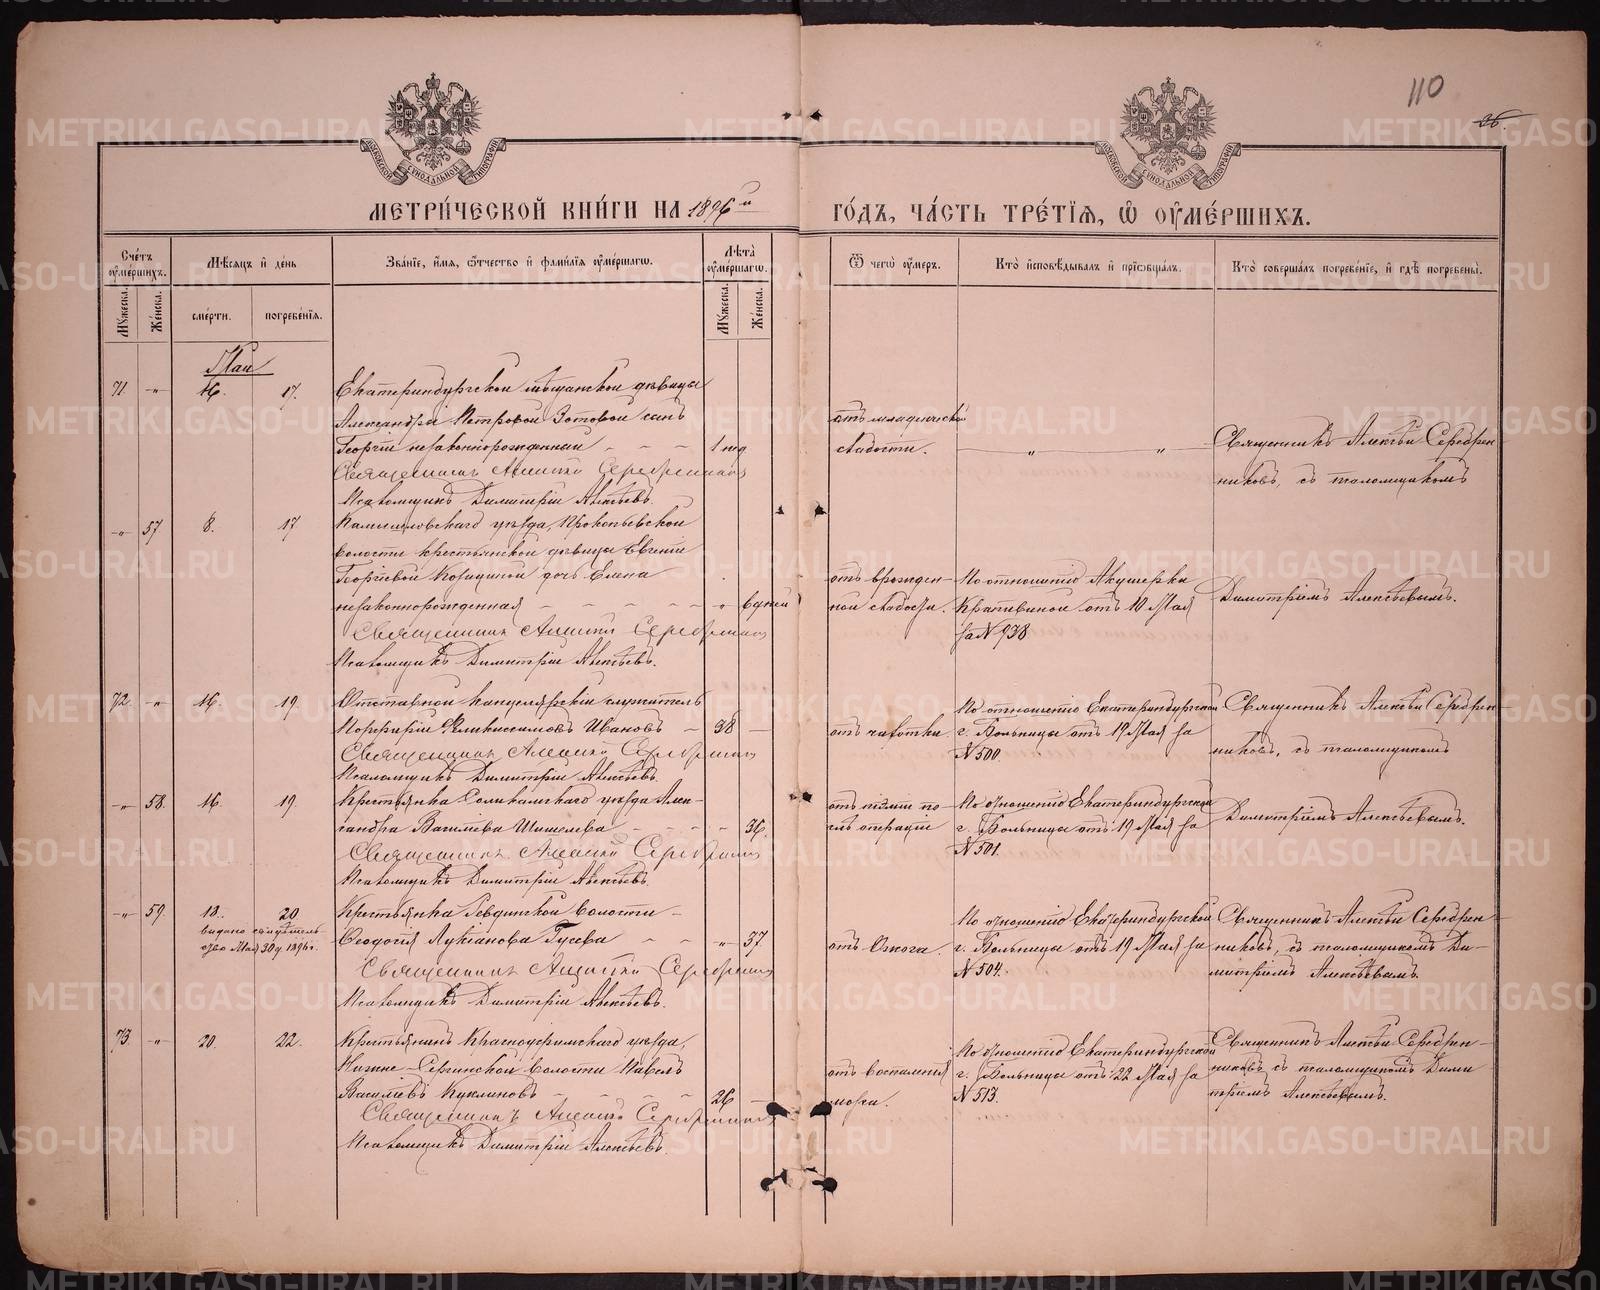 110
26.
МЕТРИ́ЧЕСКОЙ КНИ́ГИ НА 1896й ГО́ДЪ, ЧА́СТЬ ТРЕ́ТЇѦ, Ѡ҆ ОУ҆МЕ́РШИХЪ.
Сче́тъ оу҆ме́ршихъ.
Мѣ́сяцъ и҆ де́нь
Зва́нїе, и҆́мѧ, ѻ҆́тчество и҆ фами́лїѧ оу҆ме́ршагѡ.
Лѣ́та оу҆ме́ршагѡ.
Ѿ чегѡ̀ оу҆́меръ.
Кто̀ и҆сповѣ́дывалъ и҆ прїѡбща́лъ.
Кто̀ соверша́лъ погребе́нїе, и҆ гдѣ̀ погребены̀.
Му́жеска.
Же́нска.
сме́рти.
погребе́нїѧ.
Му́жеска.
Же́нска.
Май
71 - " - 16. 17.
Екатеринбургской мѣщанской дѣвицы
Александры Петровой Зотовой сынъ
Георгій незаконнорожденный - - - 1 год
Священникъ Алексѣй Серебренниковъ
Псаломщикъ Димитрій Алексѣевъ.
отъ младенческой
слабости.
" "
Священникъ Алексѣй Серебрен
никовъ, съ псаломщикомъ
- " - 57 8. 17
Камышловскаго уѣзда, Прокопьевской
волости крестьянской дѣвицы Евгеніи
Георгіевой дочь Елена
незаконнорожденная - - - - " 6 дней
Священникъ Алексѣй Серебренниковъ
Псаломщикъ Димитрій Алексѣевъ.
отъ врожден-
ной слабости.
По отношенію Акушерки
Крапивиной отъ 10 Мая
за № 938
Димитріемъ Алексѣевымъ.
72. - " - 16. 19.
Отставной канцелярскій служитель
Порфирій Ивановъ - 38 -
Священникъ Алексѣй Серебренниковъ
Псаломщикъ Димитрій Алексѣевъ.
отъ чахотки.
По отношенію Екатеринбургской
г. Больницы отъ 19 Мая за
№ 500.
Священникъ Алексѣй Серебрен-
никовъ, съ псаломщикомъ
- " - 58. 16. 19.
Крестьянка Соликамскаго уѣзда Алек-
сандра Васильева - - - - 36.
Священникъ Алексѣй Серебренниковъ
Псаломщикъ Димитрій Алексѣевъ.
по-
слѣ операціи
По отношенію Екатеринбургской
г. Больницы отъ 19 Мая за
№ 501.
Димитріемъ Алексѣевымъ.
- " - 59. 18. 20
выдано свидѣтель
ство Мая 30 д 1896 г.
Крестьянка Ревдинской волости -
Ѳеодотія Лукіанова Гусева - - - " - 37
Священникъ Алексѣй Серебренниковъ
Псаломщикъ Димитрій Алексѣевъ.
отъ Ожога.
По отношенію Екатеринбургской
г. Больницы отъ 19 Мая за
№ 504.
Священникъ Алексѣй Серебрен-
никовъ, съ псаломщикомъ Ди-
митріемъ Алексѣевымъ.
73. - " - 20. 22.
Крестьянинъ Красноуфимскаго уѣзда,
Нижне-Сергинской волости Павелъ
Василіевъ Куклиновъ - - - - 26 -
Священникъ Алексѣй Серебренниковъ
Псаломщикъ Димитрій Алексѣевъ.
отъ воспаленія
мозга.
По отношенію Екатеринбургской
г. Больницы отъ 22 Мая за
№ 513.
Священникъ Алексѣй Серебрен-
никовъ съ псаломщикомъ Дими
тріемъ Алексѣевымъ.
METRIKI.GASO-URAL.RU